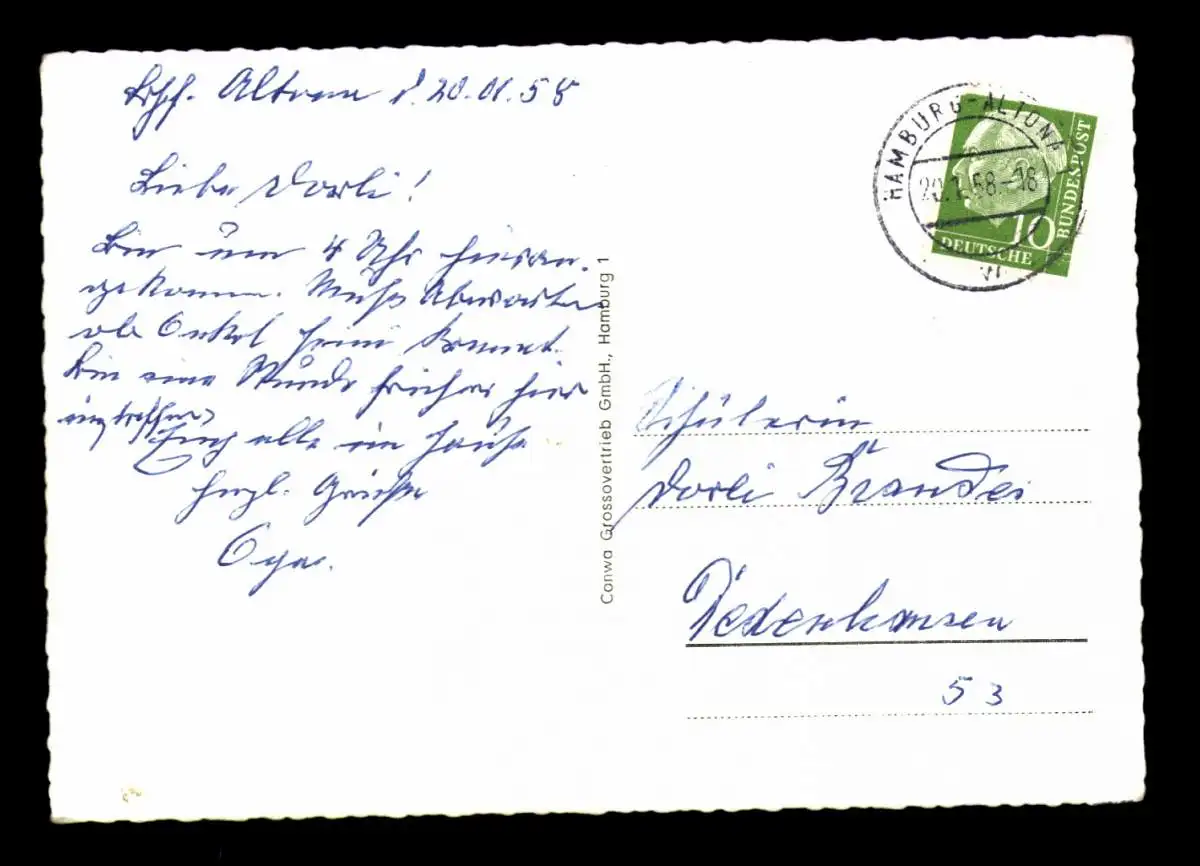 Bhf. Altona d. 20.01.58
Liebe Dorli!
Bin um 4 Uhr hier an-
gekommen. Muß abwarten
ob Onkel Heini kommt.
Bin eine Stunde früher hier
eingetroffen
Euch alle im Hause
herzl. Grüße
Opa.
Conwa Grossovertrieb GmbH., Hamburg 1
HAMBURG-ALTONA
20.1.58.-18
10
DEUTSCHE
BUNDESPOST
Schülerin
Dorli Brandes
Dedenhausen
53